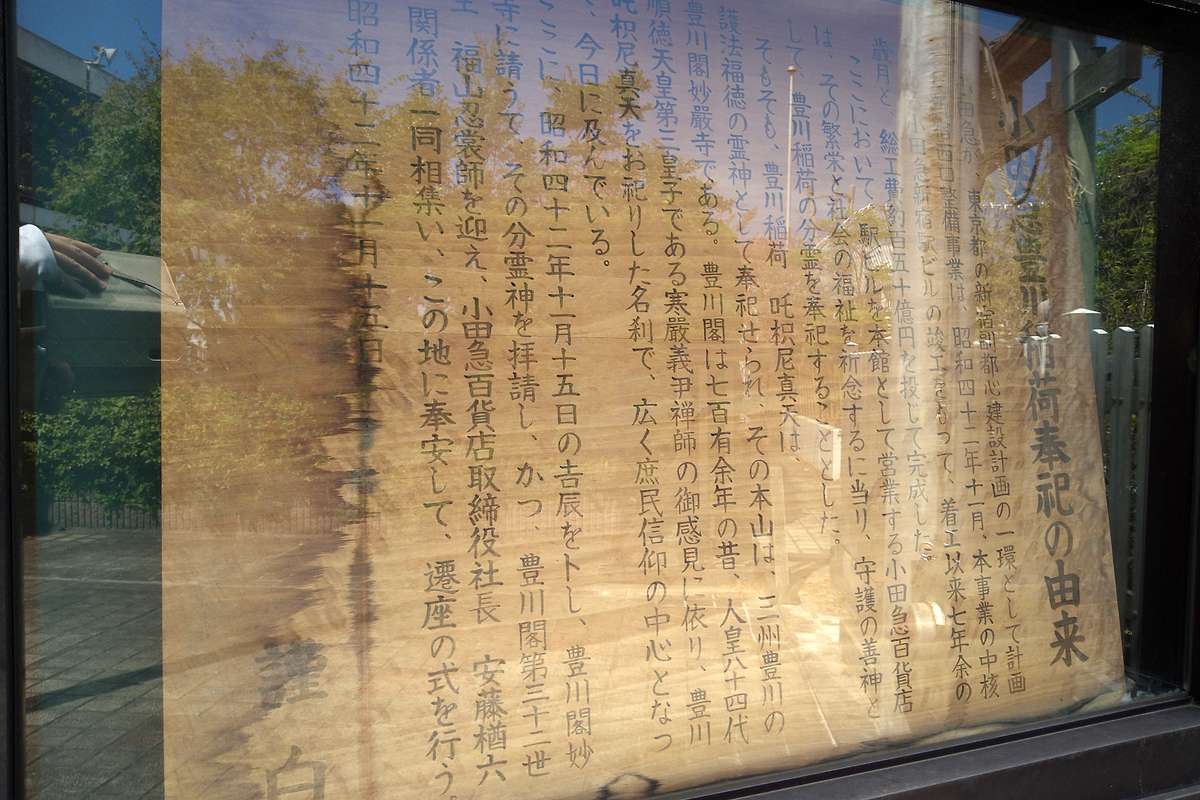 小田急豊川稲荷奉祀の由来
田急が、東京都の新宿副都心建設計画の一環として計画
西口整備事業は、昭和四十二年十一月、本事業の中核
小田急新宿駅ビルの竣工をもって、着工以来七年余の
歳月と、総工費約百五十億円を投じて完成した。
ここにおいて、駅ビルを本館として営業する小田急百貨店
は、その繁栄と社会の福祉を祈念するに当り、守護の善神と
して、豊川稲荷の分霊を奉祀することとした。
そもそも、豊川稲荷 吒枳尼真天は、
護法福徳の霊神として奉祀せられ、その本山は 三州豊川の
豊川閣妙厳寺である。豊川閣は七百有余年の昔、人皇八十四代
順徳天皇第三皇子である寒巌義尹禅師の御感見に依り、豊川
吒枳尼真天をお祀りした名刹で、広く庶民信仰の中心となっ
、今日に及んでいる。
ここに、昭和四十二年十一月十五日の吉辰をトし、豊川閣妙
寺に請うて、その分霊神を拝請し、かつ、豊川閣第三十二世
福山忍裳師を迎え、小田急百貨店取締役社長 安藤楢六
関係者一同相集い、この地に奉安して、遷座の式を行う。
昭和四十二年十一月十五日
謹白